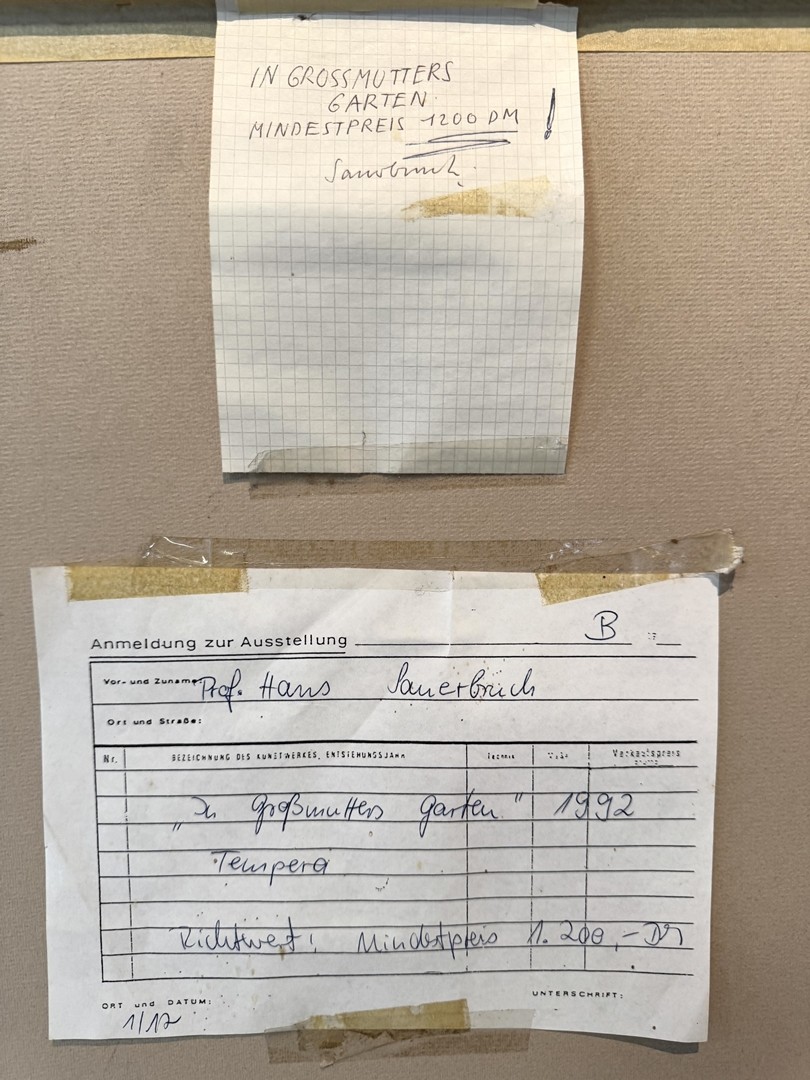 IN GROSSMUTTERS
GARTEN
MINDESTPREIS 1200 DM !
Sauerbruch
Anmeldung zur Ausstellung B
Vor- und Zuname: Prof. Hans Sauerbruch
Ort und Straße:
Nr. BEZEICHNUNG DES KUNSTWERKES, ENTSTEHUNGSJAHR Technik Verkaufspreis
„In Großmutters Garten" 1992
Tempera
Richtwert: Mindestpreis 1.200,- DM
ORT und DATUM: UNTERSCHRIFT:
1/17